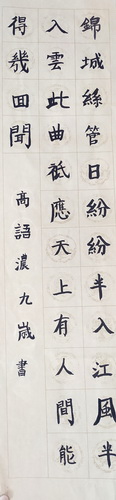 錦城絲管日紛紛半入江風半
入雲此曲祗應天上有人間能
得幾回聞
高語濃九歲書